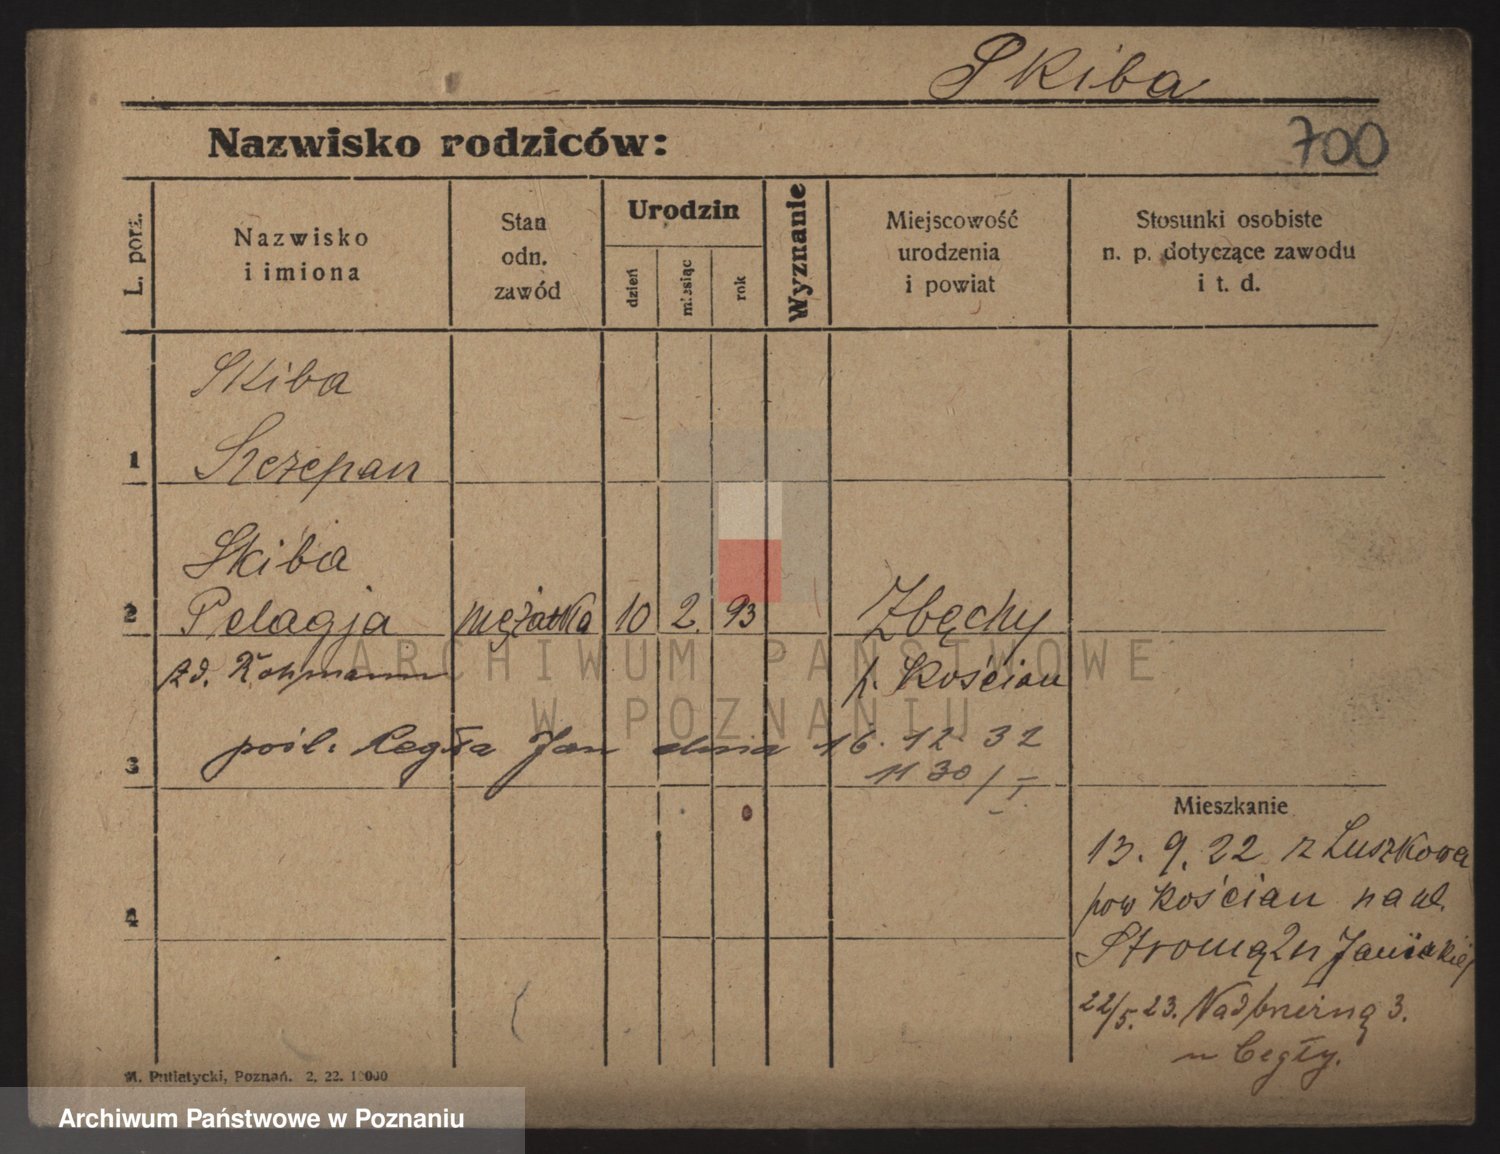 Skiba
Nazwisko rodziców:
700
L. porz.
Nazwisko
i imiona
Stan
odn.
zawód
Urodzin
dzień
miesiąc
rok
Wyznanie
Miejscowość
urodzenia
i powiat
Stosunki osobiste
n. p. dotyczące zawodu
i t. d.
Skiba
1 Szczepan
Skiba
2 Pelagja mężatka 10 2. 93 Zbęchy
zd. p. Kościan
3 pośl. Cegła Jan dnia 16. 12. 32
1130/-
Mieszkanie
13. 9. 22 z Luszkowa
pow Kościan na ul.
Stromą 2 u
22/5. 23. Nadbrzeżną 3.
u Cegły.
4
M. Putiatycki, Poznań. 2. 22. 10000
ARCHIWUM PAŃSTWOWE
W POZNANIU
Archiwum Państwowe w Poznaniu